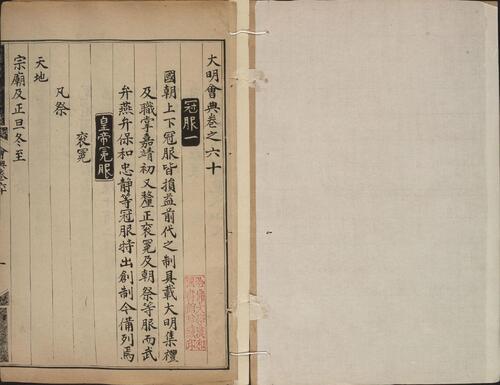 大明會典卷之六十
冠服一
國朝上下冠服皆損益前代之制具載大明集禮
及職掌嘉靖初又釐正衮冕及朝祭等服而武
弁燕弁保和忠靜等冠服特出創制今備列焉
皇帝冕服
衮冕
凡祭
天地
宗廟及正旦冬至